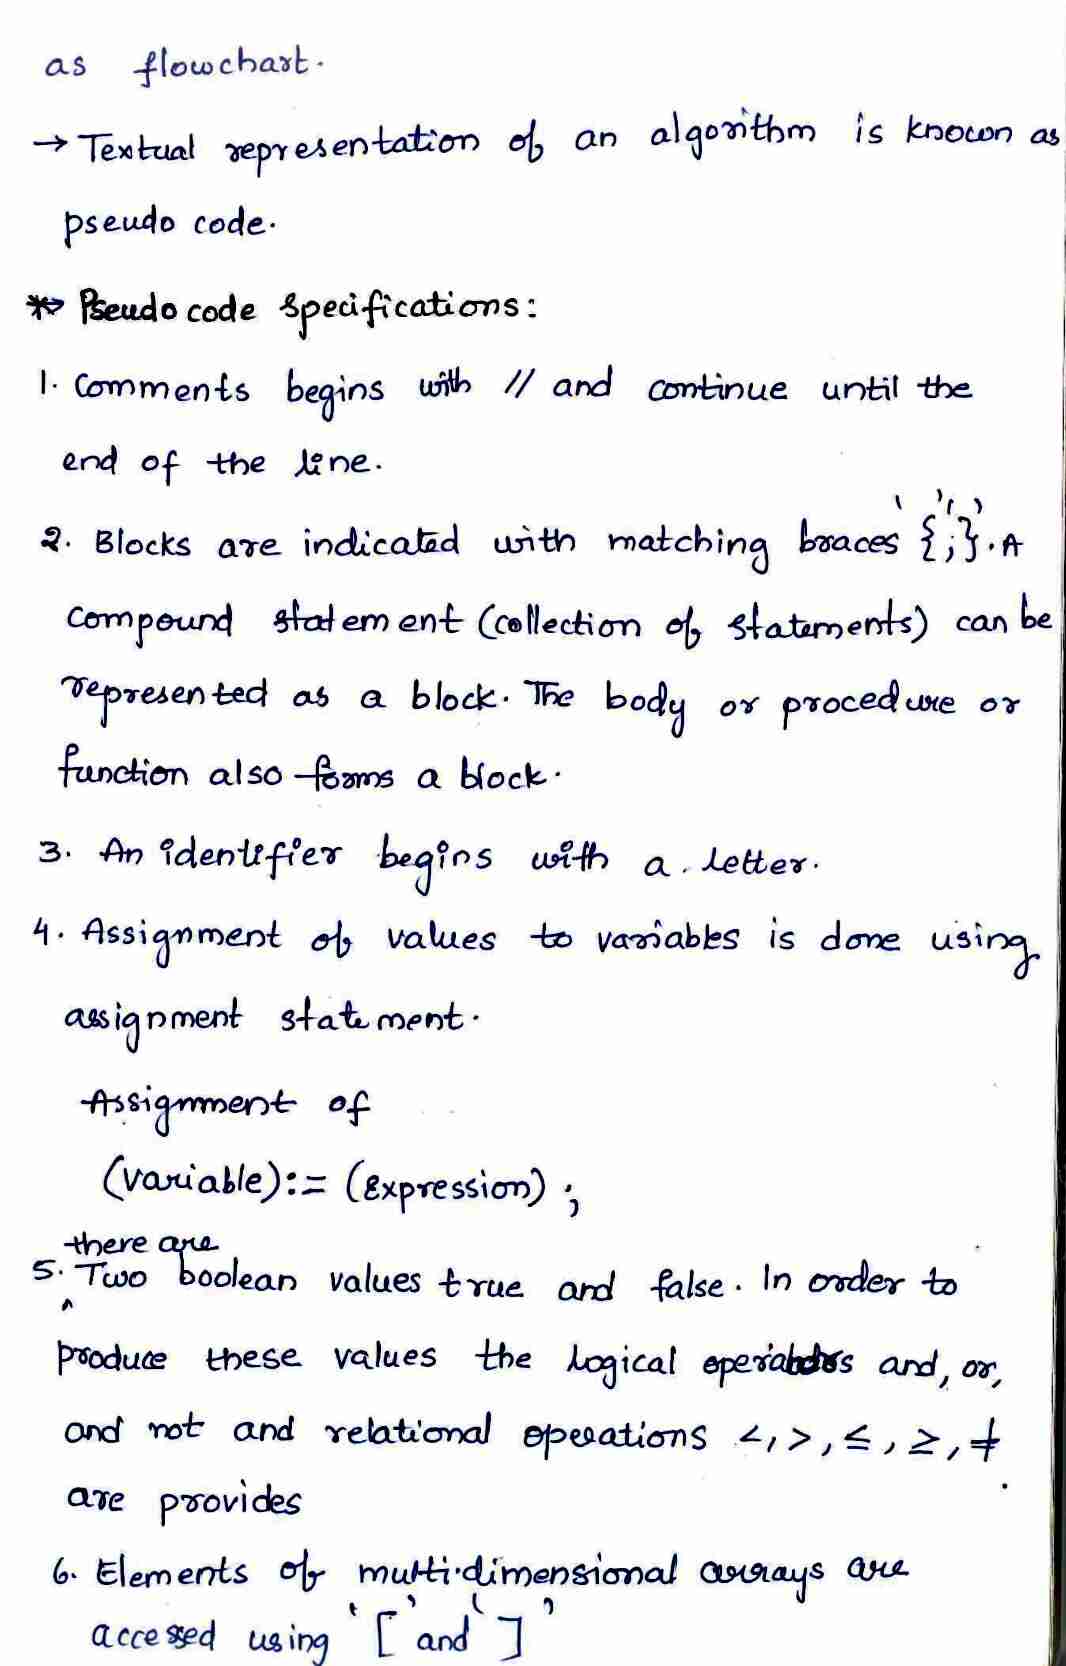 as flowchart.
→ Textual representation of an algorithm is known as
pseudo code.
*⇒ Pseudo code specifications:
1. Comments begins with // and continue until the
end of the line.
2. Blocks are indicated with matching braces '{';'}'. A
compound statement (collection of statements) can be
represented as a block. The body or procedure or
function also forms a block.
3. An identifier begins with a letter.
4. Assignment of values to variables is done using
assignment statement.
Assignment of
(variable):= (Expression);
there are
5. ^ Two boolean values true and false. In order to
produce these values the logical operators and, or,
and not and relational operations <, >, ≤, ≥, ≠
are provides.
6. Elements of multi-dimensional arrays are
accessed using '[' and ']'